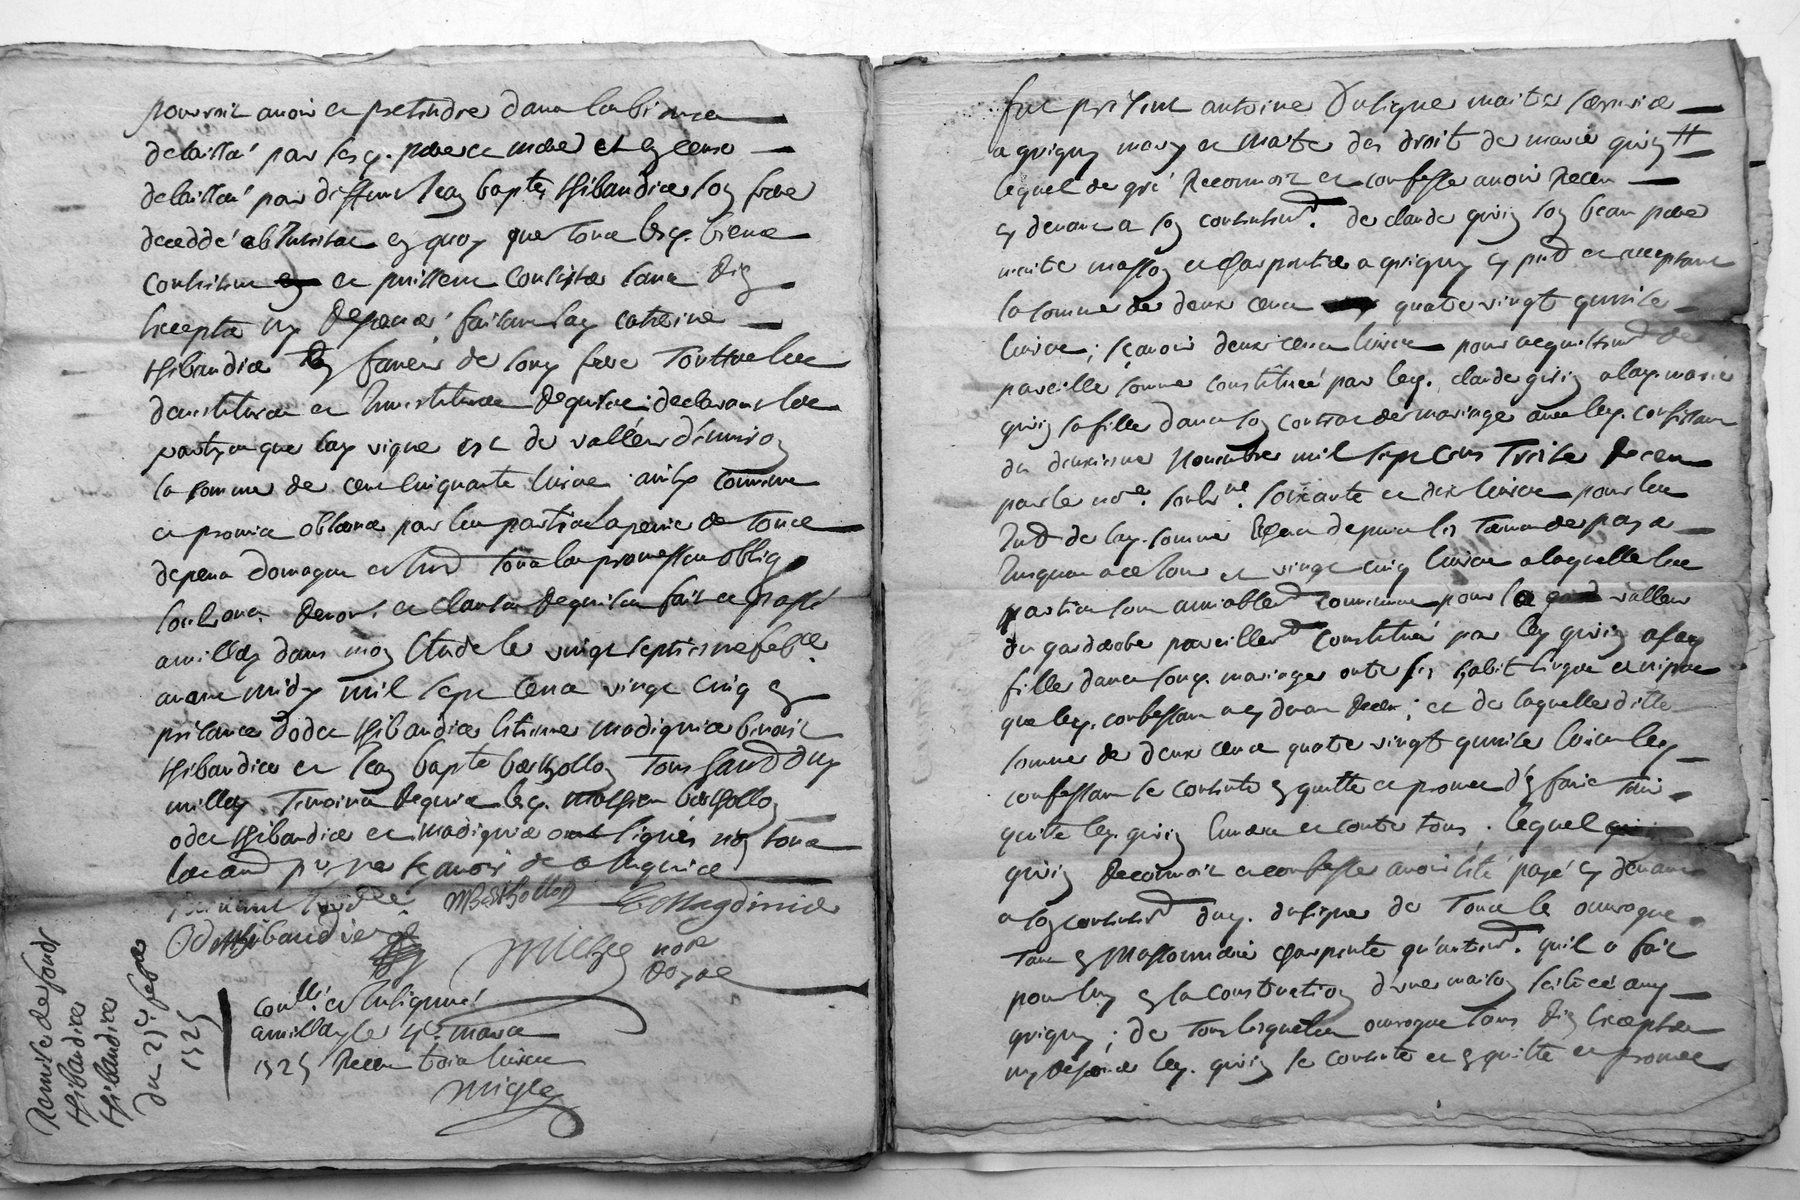 pourroit avoir et pretendre dans les biens
delaissé par lesq. pere et mere et en ceux
delaissé par deffunt Jean bapte thibaudier son frere
decedé ab intestat en quoy que tous lesq. biens
consistent et puissent consister sans rien
excepter ny reserver faisant lay catherine
thibaudier en faveur de sond frere touttes les
devestitures et investitures requises declarant les
parties que lay vigne est de valleur d'environ
la somme de cent cinquante livres ainsy convenu
et promis observer par les parties a peine de tous
depens domages et sous les promesses oblig
soub. renon. et clauses requises fait et passé
a millay dans mon etude le vingt septieme febre.
avant midy mil sept cens vingt cinq en
presence d'odet thibaudier etienne magdinier benoit
thibaudier et Jean bapte berthollon tous dud
millay temoins requis lesq. berthollon
odet thibaudier et magdinier ont signés non tous
les autres pour ne sçavoir de ce enquis
MBerthollon E Magdinier
Od thibaudier
michon nore
royal
conllé et insigné
a millay le 4e. mars
1725 Receu trois livres
michon
Remise de fonds
thibaudier
thibaudier
du 27e. febre
1725
fut present antoine Duligne maitre
a grigny mary et maitre des droit de marie giriny
lequel de gré Reconnoit et confesse avoir Receu
cy devant a son contentemt. de claude girin son beau pere
maitre masson et charpentier a grigny cy prt et acceptant
la somme de deux cens quatre vingt quinze
livres; sçavoir deux cens livres pour acquittemt de
pareille somme constitué par ley. claude girin a lay. marie
girin sa fille dans son contrat de mariage avec ley. confessant
du deuxieme Novembre mil sept cens treize Receu
par le nore. soubne. soixante et dix livres pour les
de lay. somme depuis les termes de payer
jusques a ce jour et vingt cinq livres a laquelle les
parties sont amiablemt convenu pour la valleur
du garderobe pareillemt constitué par ley girin a say
fille dans sony. mariage outre ses habit linge et nipes
que ley. confessant a cy devant Receu; et de laquelle ditte
somme de deux cens quatre vingt quinze livres ley
confessant se contente en quitte et promet d'en faire tenir
quitte ley. girin envers et contre tous. lequel
girin Reconnoit et confesse avoir eté payé cy devant
a son contentemt duy. duligne de tous les ouvrages
tant en massonnerie charpente qu'autremt. quil a fait
pour luy en la construction d'une maison scituée auy
grigny; de tous lesquels ouvrages sans rien excepter
ny reserver ley. girin se contente et en quitte et promet